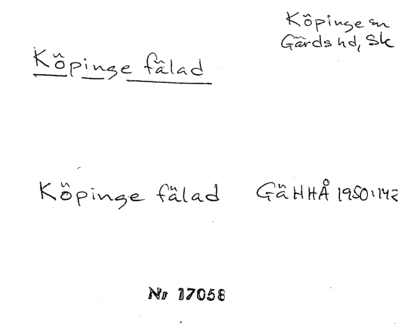 Köpinge sn
Gärds hd, Sk
Köpinge fälad
Köpinge fälad GäHHÅ 1950:142
Nr 17058